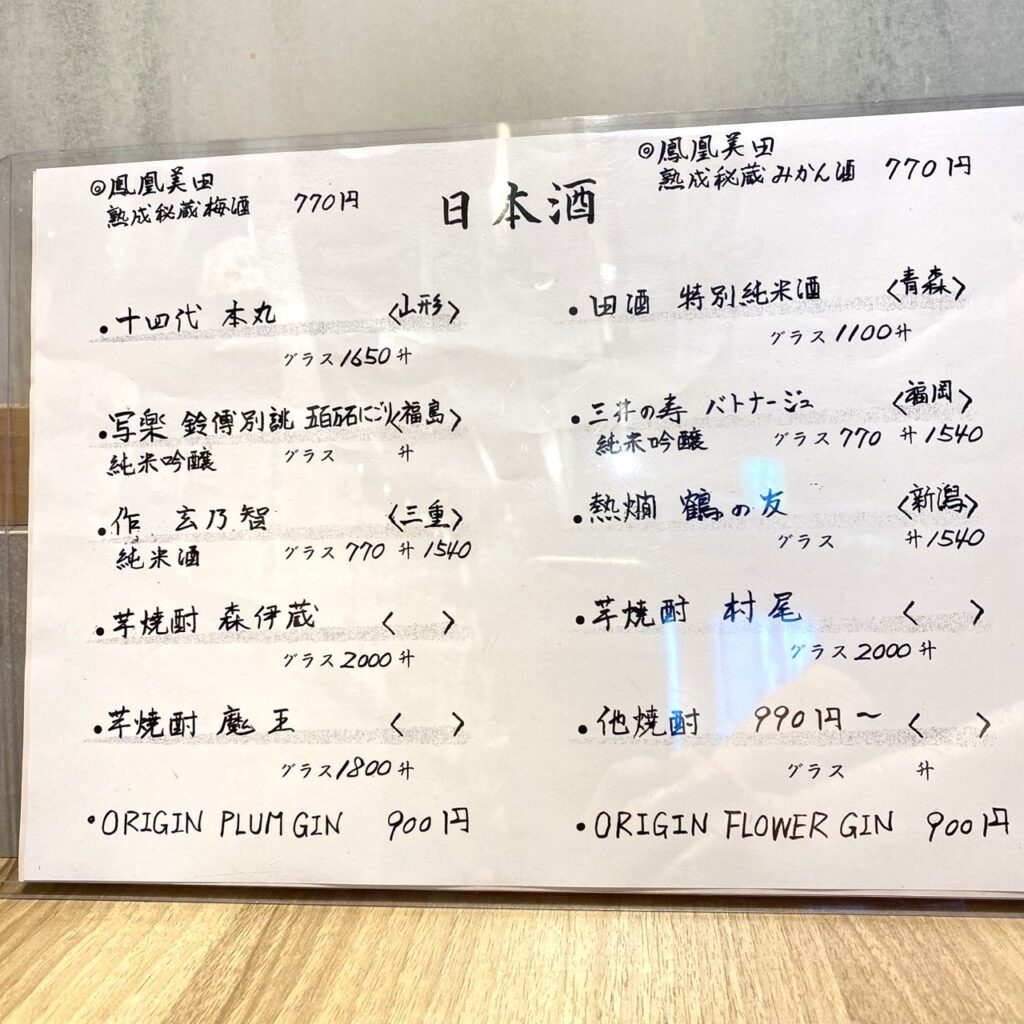 ◎鳳凰美田
熟成秘蔵梅酒 770円
◎鳳凰美田
熟成秘蔵みかん酒 770円
日本酒
・十四代 本丸 〈山形〉
グラス1650 升
・写楽 鈴傳別誂 五百万石にごり〈福島〉
純米吟醸 グラス 升
・作 玄乃智 〈三重〉
純米酒 グラス770 升1540
・芋焼酎 森伊蔵 〈 〉
グラス2000 升
・芋焼酎 魔王 〈 〉
グラス1800 升
・ORIGIN PLUM GIN 900円
・田酒 特別純米酒 〈青森〉
グラス1100 升
・三井の寿 バトナージュ 〈福岡〉
純米吟醸 グラス770 升1540
・熱燗 鶴の友 〈新潟〉
グラス 升1540
・芋焼酎 村尾 〈 〉
グラス2000 升
・他焼酎 990円～ 〈 〉
グラス 升
・ORIGIN FLOWER GIN 900円